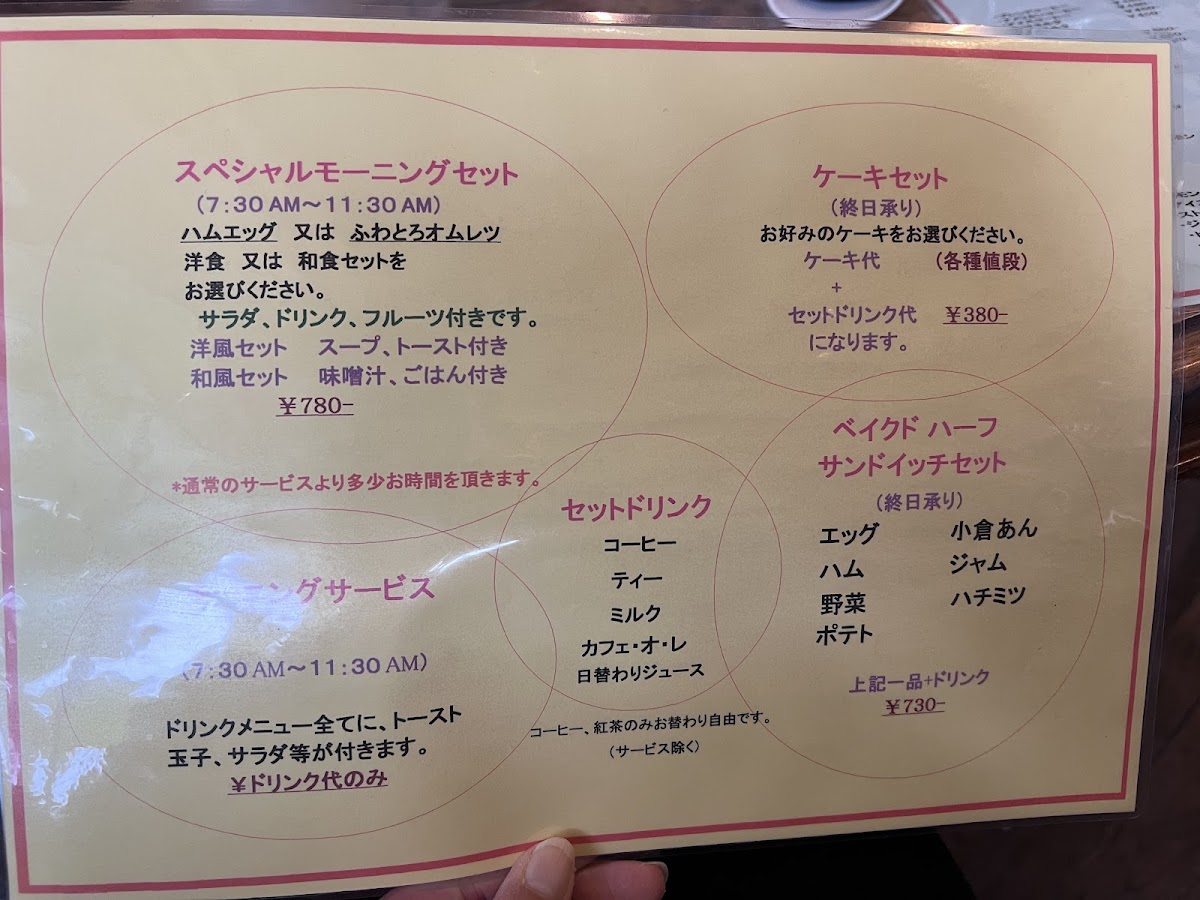 スペシャルモーニングセット
（7：30 AM～11：30 AM）
ハムエッグ 又は ふわとろオムレツ
洋食 又は 和食セットを
お選びください。
サラダ、ドリンク、フルーツ付きです。
洋風セット スープ、トースト付き
和風セット 味噌汁、ごはん付き
￥780-
*通常のサービスより多少お時間を頂きます。
ケーキセット
（終日承り）
お好みのケーキをお選びください。
ケーキ代 （各種値段）
+
セットドリンク代 ￥380-
になります。
ングサービス
（7：30 AM～11：30 AM）
ドリンクメニュー全てに、トースト
玉子、サラダ等が付きます。
￥ドリンク代のみ
セットドリンク
コーヒー
ティー
ミルク
カフェ・オ・レ
日替わりジュース
コーヒー、紅茶のみお替わり自由です。
（サービス除く）
ベイクド ハーフ
サンドイッチセット
（終日承り）
エッグ 小倉あん
ハム ジャム
野菜 ハチミツ
ポテト
上記一品+ドリンク
￥730-